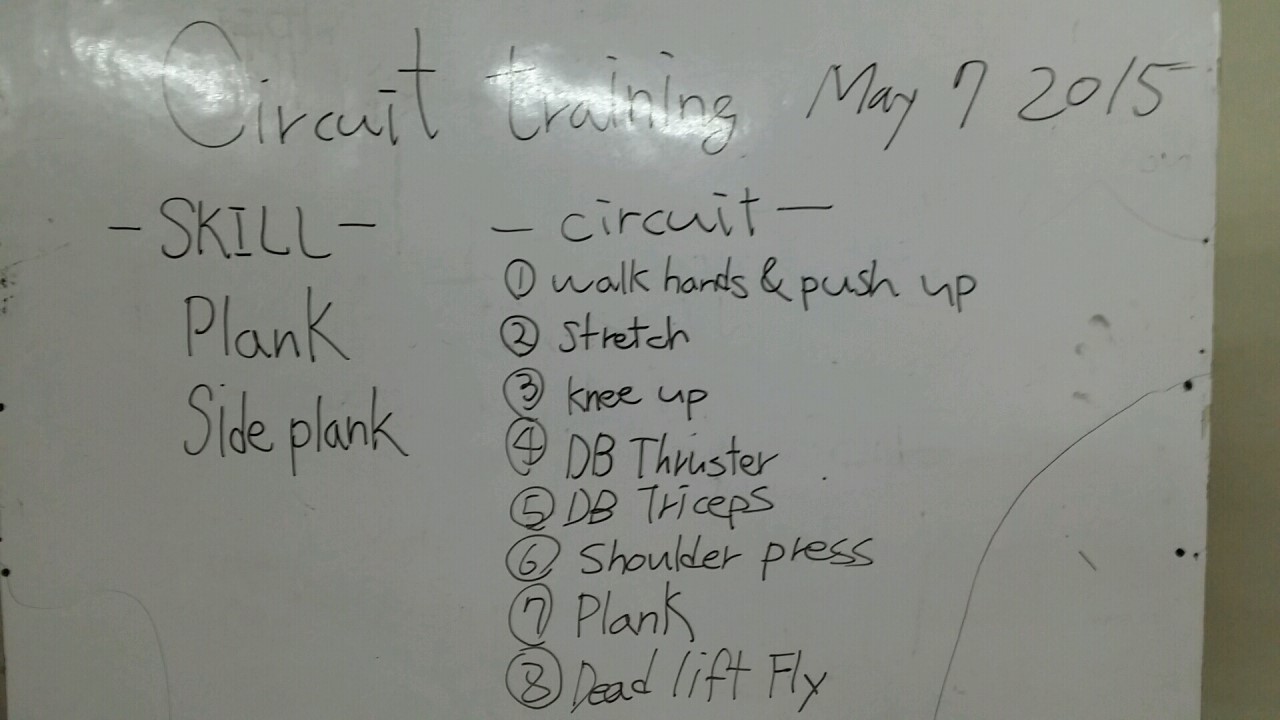 Circuit training May 7 2015
- SKILL -
Plank
Side plank
- circuit -
① walk hands & push up
② stretch
③ knee up
④ DB Thruster
⑤ DB Triceps
⑥ Shoulder press
⑦ Plank
⑧ Dead lift Fly